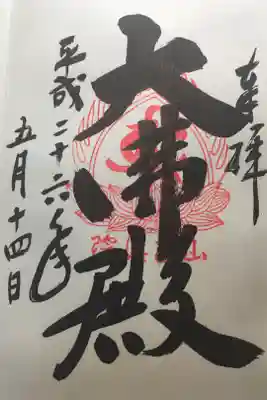 奉拝
大弗殿
平成二十六年
五月十四日